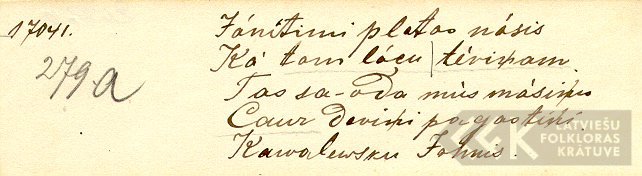 17041.
279a
Jánítimi platas násis
Ká tam lácu | téviņam.
Tas sa-oda mùs másiņu
Caur deviņi pagastiņi.
Kawalewsku Johnis.
LATVIEŠU
FOLKLORAS
KRĀTUVE